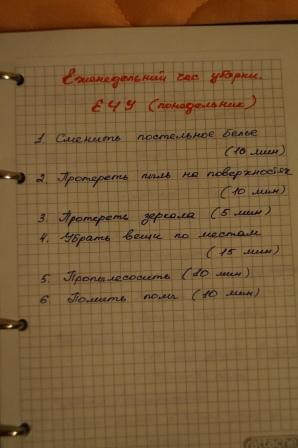 Еженедельный час уборки.
ЕЧУ (понедельник)
1. Сменить постельное белье
(10 мин)
2. Протереть пыль на поверхностях
(10 мин)
3. Протереть зеркала (5 мин)
4. Убрать вещи по местам
(15 мин)
5. Пропылесосить (10 мин)
6. Помыть полы (10 мин)